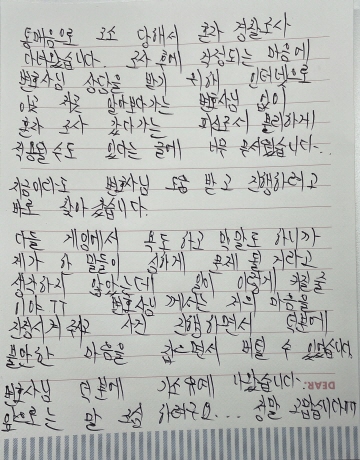 통매음으로 고소 당해서 혼자 경찰조사
다녀왔습니다. 조사 후에 걱정되는 마음에
변호사님 상담을 받기 위해 인터넷으로
이곳 저곳 알아보다가는 변호사님 없이
혼자 조사 갔다가는 피의로서 불리하게
작용될수도 있다는 글에 너무 무서웠습니다...
지금이라도 변호사님 도움 받고 진행하려고
바로 찾아 갔습니다.
다들 게임에서 욕도 하고 막말도 하니까
제가 한 말들이 심하게 문제 될 거라고
생각하지 않았는데 일이 이렇게 커질줄
이야 ㅠㅠ 변호사님 께서는 저의 마음을
진정시켜 주시고 사건 진행하면서 덕분에
불안한 마음을 잡으면서 버틸 수 있었습니다
변호사님 덕분에 기소유예 나왔습니다.
앞으로는 말 조심 하려구요... 정말 고맙습니다ㅠㅠ
DEAR.